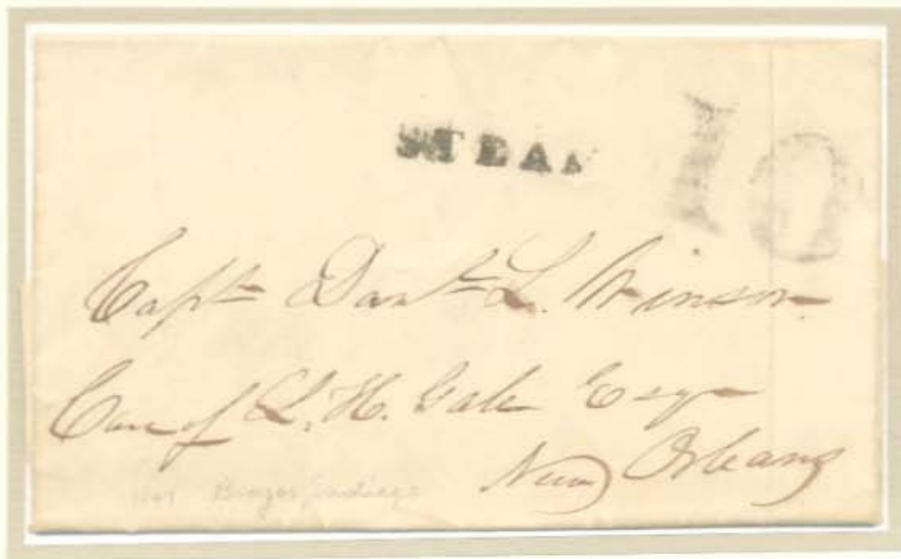 STEAM
10
Capt. Danl. L. Winsor.
Care of L. H. Gale Esqr
New Orleans
1847 Brazos Santiago